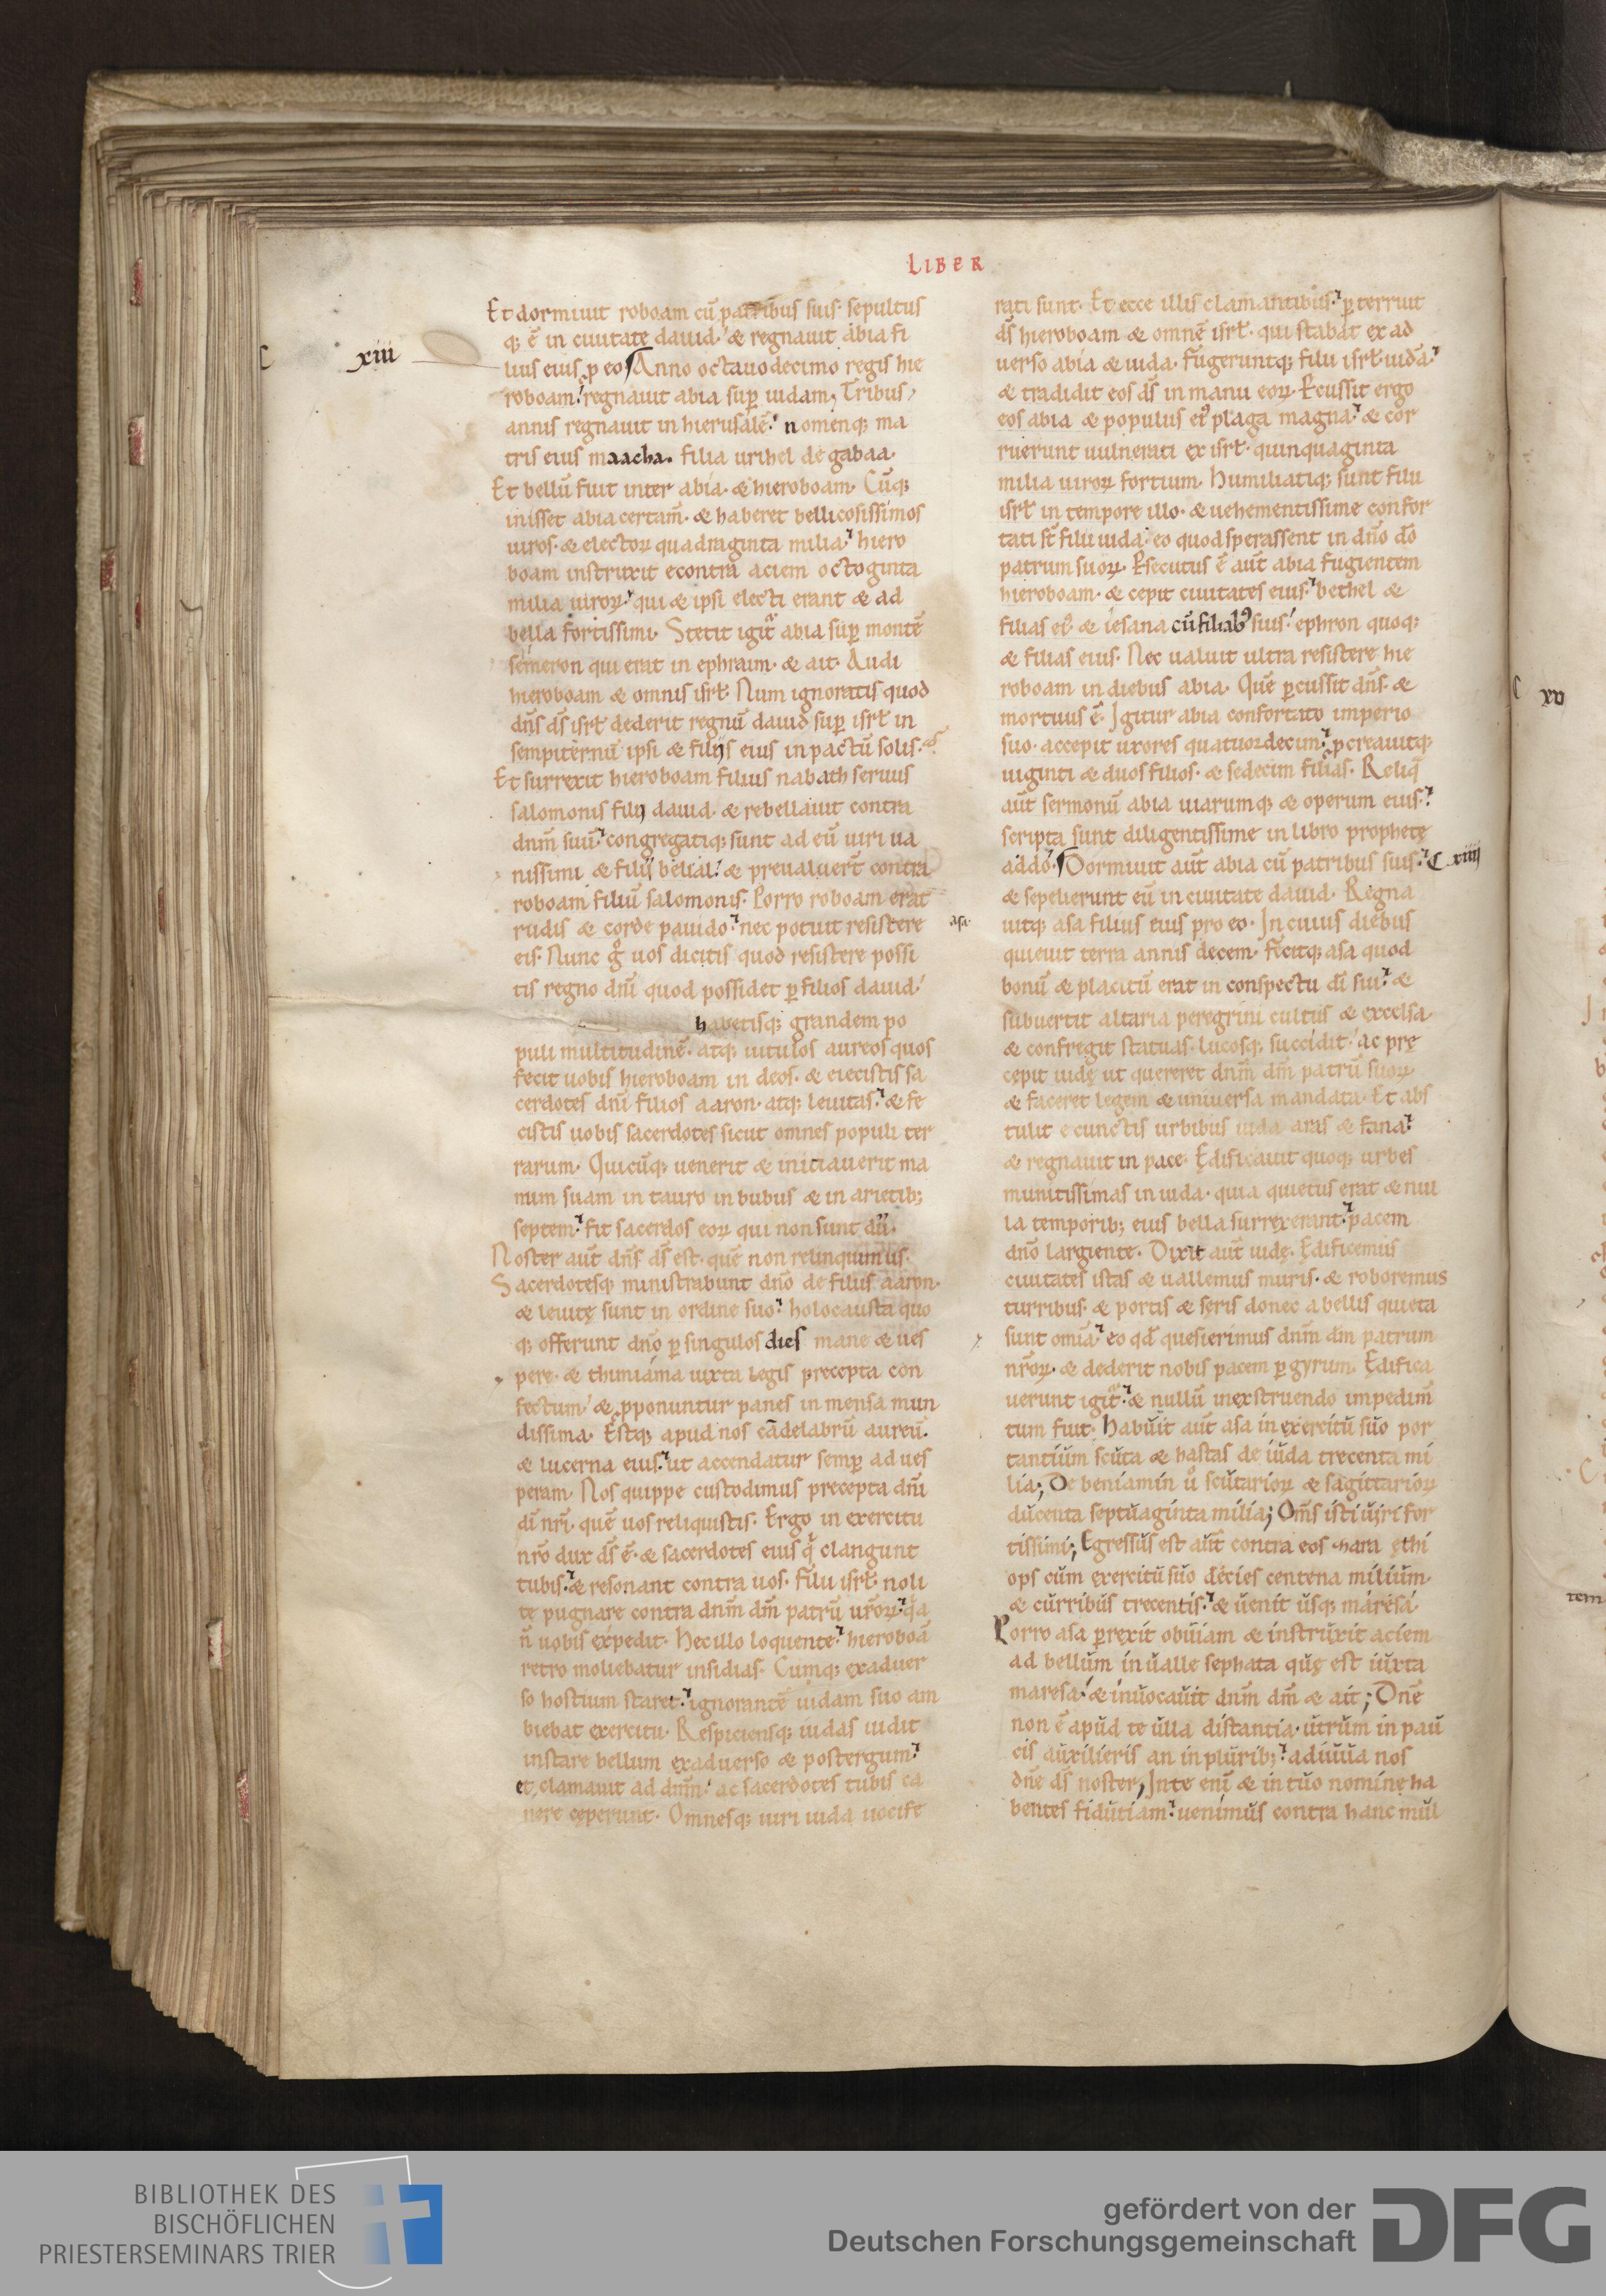 LIBER
Et dormiuit roboam cū patribus suis. sepultus
q; ē in ciuitate dauid. & regnauit abia fi
C xiii
lius eius ꝓ eo Anno octauodecimo regis hie
roboam. regnauit abia suꝑ iudam; Tribus
annis regnauit in hierusalē. nomenq; ma
tris eius maacha. filia urihel de gabaa.
Et bellū fuit inter abia. & hieroboam. Cūq;
inisset abia certam̄. & haberet bellicosissimos
uiros. & electoꝝ quadraginta milia. hiero
boam instruxit econtra aciem octoginta
milia uiroꝝ. qui & ipsi electi erant & ad
bella fortissimi. Stetit igit abia suꝑ montē
semeron qui erat in ephraim. & ait. Audi
hieroboam & omnis isrł. Num ignoratis quod
dn̄s ds̄ isrł dederit regnū dauid suꝑ isrł in
sempiternū ipsi & filijs eius in pactū solis.
Et surrexit hieroboam filius nabath seruus
salomonis filij dauid. & rebellauit contra
dnm̄ suū. congregatiq; sunt ad eū uiri ua
nissimi & filij belial. & preualuert̄ contra
roboam filiū salomonis. Porro roboam erat
rudis & corde pauido. nec potuit resistere
eis. Nunc gͦ uos dicitis quod resistere possi
tis regno dn̄i quod possidet ꝑ filios dauid.
habetisq; grandem po
puli multitudinē. atq; uitulos aureos quos
fecit uobis hieroboam in deos. & eiecistis sa
cerdotes dn̄i filios aaron. atq; leuitas. & fe
cistis uobis sacerdotes sicut omnes populi ter
rarum. Quicūq; uenerit & initiauerit ma
num suam in tauro in bubus & in arietib;
septem. fit sacerdos eoꝝ qui non sunt dii.
Noster aut̄ dn̄s ds̄ est. quē non relinquimus.
Sacerdotesq; ministrabunt dn̄o de filiis aaron.
& leuitę sunt in ordine suo. holocausta quo
q; offerunt dn̄o ꝑ singulos dies mane & ues
pere. & thimiama iuxta legis precepta con
fectum. & ꝓponuntur panes in mensa mun
dissima. Estq; apud nos cādelabrū aureū.
& lucerna eius. ut accendatur semꝑ ad ues
peram. Nos quippe custodimus precepta dn̄i
dī nr̄i. quē uos reliquistis. Ergo in exercitu
nr̄o dux ds̄ ē. & sacerdotes eius qͥ clangunt
tubis. & resonant contra uos. filii isrł. noli
te pugnare contra dnm̄ dm̄ patrū ur̄oꝝ. qͣa
n̄ uobis expedit. Hec illo loquente. hieroboā
retro moliebatur insidias. Cumq; exaduer
so hostium staret. ignorantē iudam suo am
biebat exercitu. Respiciensq; iudas uidit
instare bellum exaduerso & postergum.
et clamauit ad dnm̄. ac sacerdotes tubis ca
nere ceperunt. Omnesq; uiri iuda uocife
rati sunt. Et ecce illis clamantibus. ꝑterruit
ds̄ hieroboam & omnē isrł. qui stabat ex ad
uerso abia & iuda. fugeruntq; filii isrł iudā.
& tradidit eos ds̄ in manu eoꝝ. Percussit ergo
eos abia & populus eiꝰ plaga magna. & cor
ruerunt uulnerati ex isrł. quinquaginta
milia uiroꝝ fortium. Humiliatiq; sunt filii
isrł in tempore illo. & uehementissime confor
tati st̄ filii iuda. eo quod sperassent in dn̄o dō
patrum suoꝝ. Psecutus ē aut̄ abia fugientem
hieroboam. & cepit ciuitates eius. bethel &
filias eiꝰ. & iesana cū filiabꝰ suis. ephron quoq;
& filias eius. Nec ualuit ultra resistere hie
roboam in diebus abia. Quē ꝑcussit dn̄s. &
mortuus ē. Igitur abia confortato imperio
suo. accepit uxores quatuordecim. ꝓcreauitq;
uiginti & duos filios. & sedecim filias. Reliq̄
aut̄ sermonū abia uiarumq; & operum eius.
scripta sunt diligentissime in libro prophetę
addo. Dormiuit aut̄ abia cū patribus suis. C xiiij
& sepelierunt eū in ciuitate dauid. Regna
asa.
uitq; asa filius eius pro eo. In cuius diebus
quieuit terra annis decem. fecitq; asa quod
bonū & placitū erat in conspectu dī sui. &
subuertit altaria peregrini cultus & excelsa.
& confregit statuas. lucosq; succidit. ac pre
cepit iudę ut quereret dnm̄ dm̄ patrū suoꝝ.
& faceret legem & uniuersa mandata. Et abs
tulit e cunctis urbibus iuda aras & fana.
& regnauit in pace. Edificauit quoq; urbes
munitissimas in iuda. quia quietus erat & nul
la temporib; eius bella surrexerant. pacem
dn̄o largiente. Dixit aut̄ iudę. Edificemus
ciuitates istas & uallemus muris. & roboremus
turribus. & portis & seris donec a bellis quieta
sunt omīa. eo qd̄ quesierimus dnm̄ dm̄ patrum
nr̄oꝝ. & dederit nobis pacem ꝑ gyrum. Edifica
uerunt igit. & nullū in exstruendo impedim̄
tum fuit. Habuit aut̄ asa in exercitū suo por
tantium scuta & hastas de iuda trecenta mi
lia; De beniamin uͦ scutarioꝝ & sagittarioꝝ
ducenta septuaginta milia; Oms̄ isti uiri for
tissimi; Egressus est aut̄ contra eos zhara ethi
ops cum exercitū suo decies centena milium.
& curribus trecentis. & uenit usq; maresa.
Porro asa ꝑrexit obuiam & instruxit aciem
ad bellum in ualle sephata quę est iuxta
maresa. & inuocauit dnm̄ dm̄ & ait; Dn̄e
non ē apud te ulla distantia. utrum in pau
cis auxilieris an in plurib;. adiuua nos
dn̄e ds̄ noster, In te enī & in tuo nomine ha
bentes fidutiam. uenimus contra hanc mul
C xv
tem
BIBLIOTHEK DES
BISCHÖFLICHEN
PRIESTERSEMINARS TRIER
gefördert von der
Deutschen Forschungsgemeinschaft
DFG